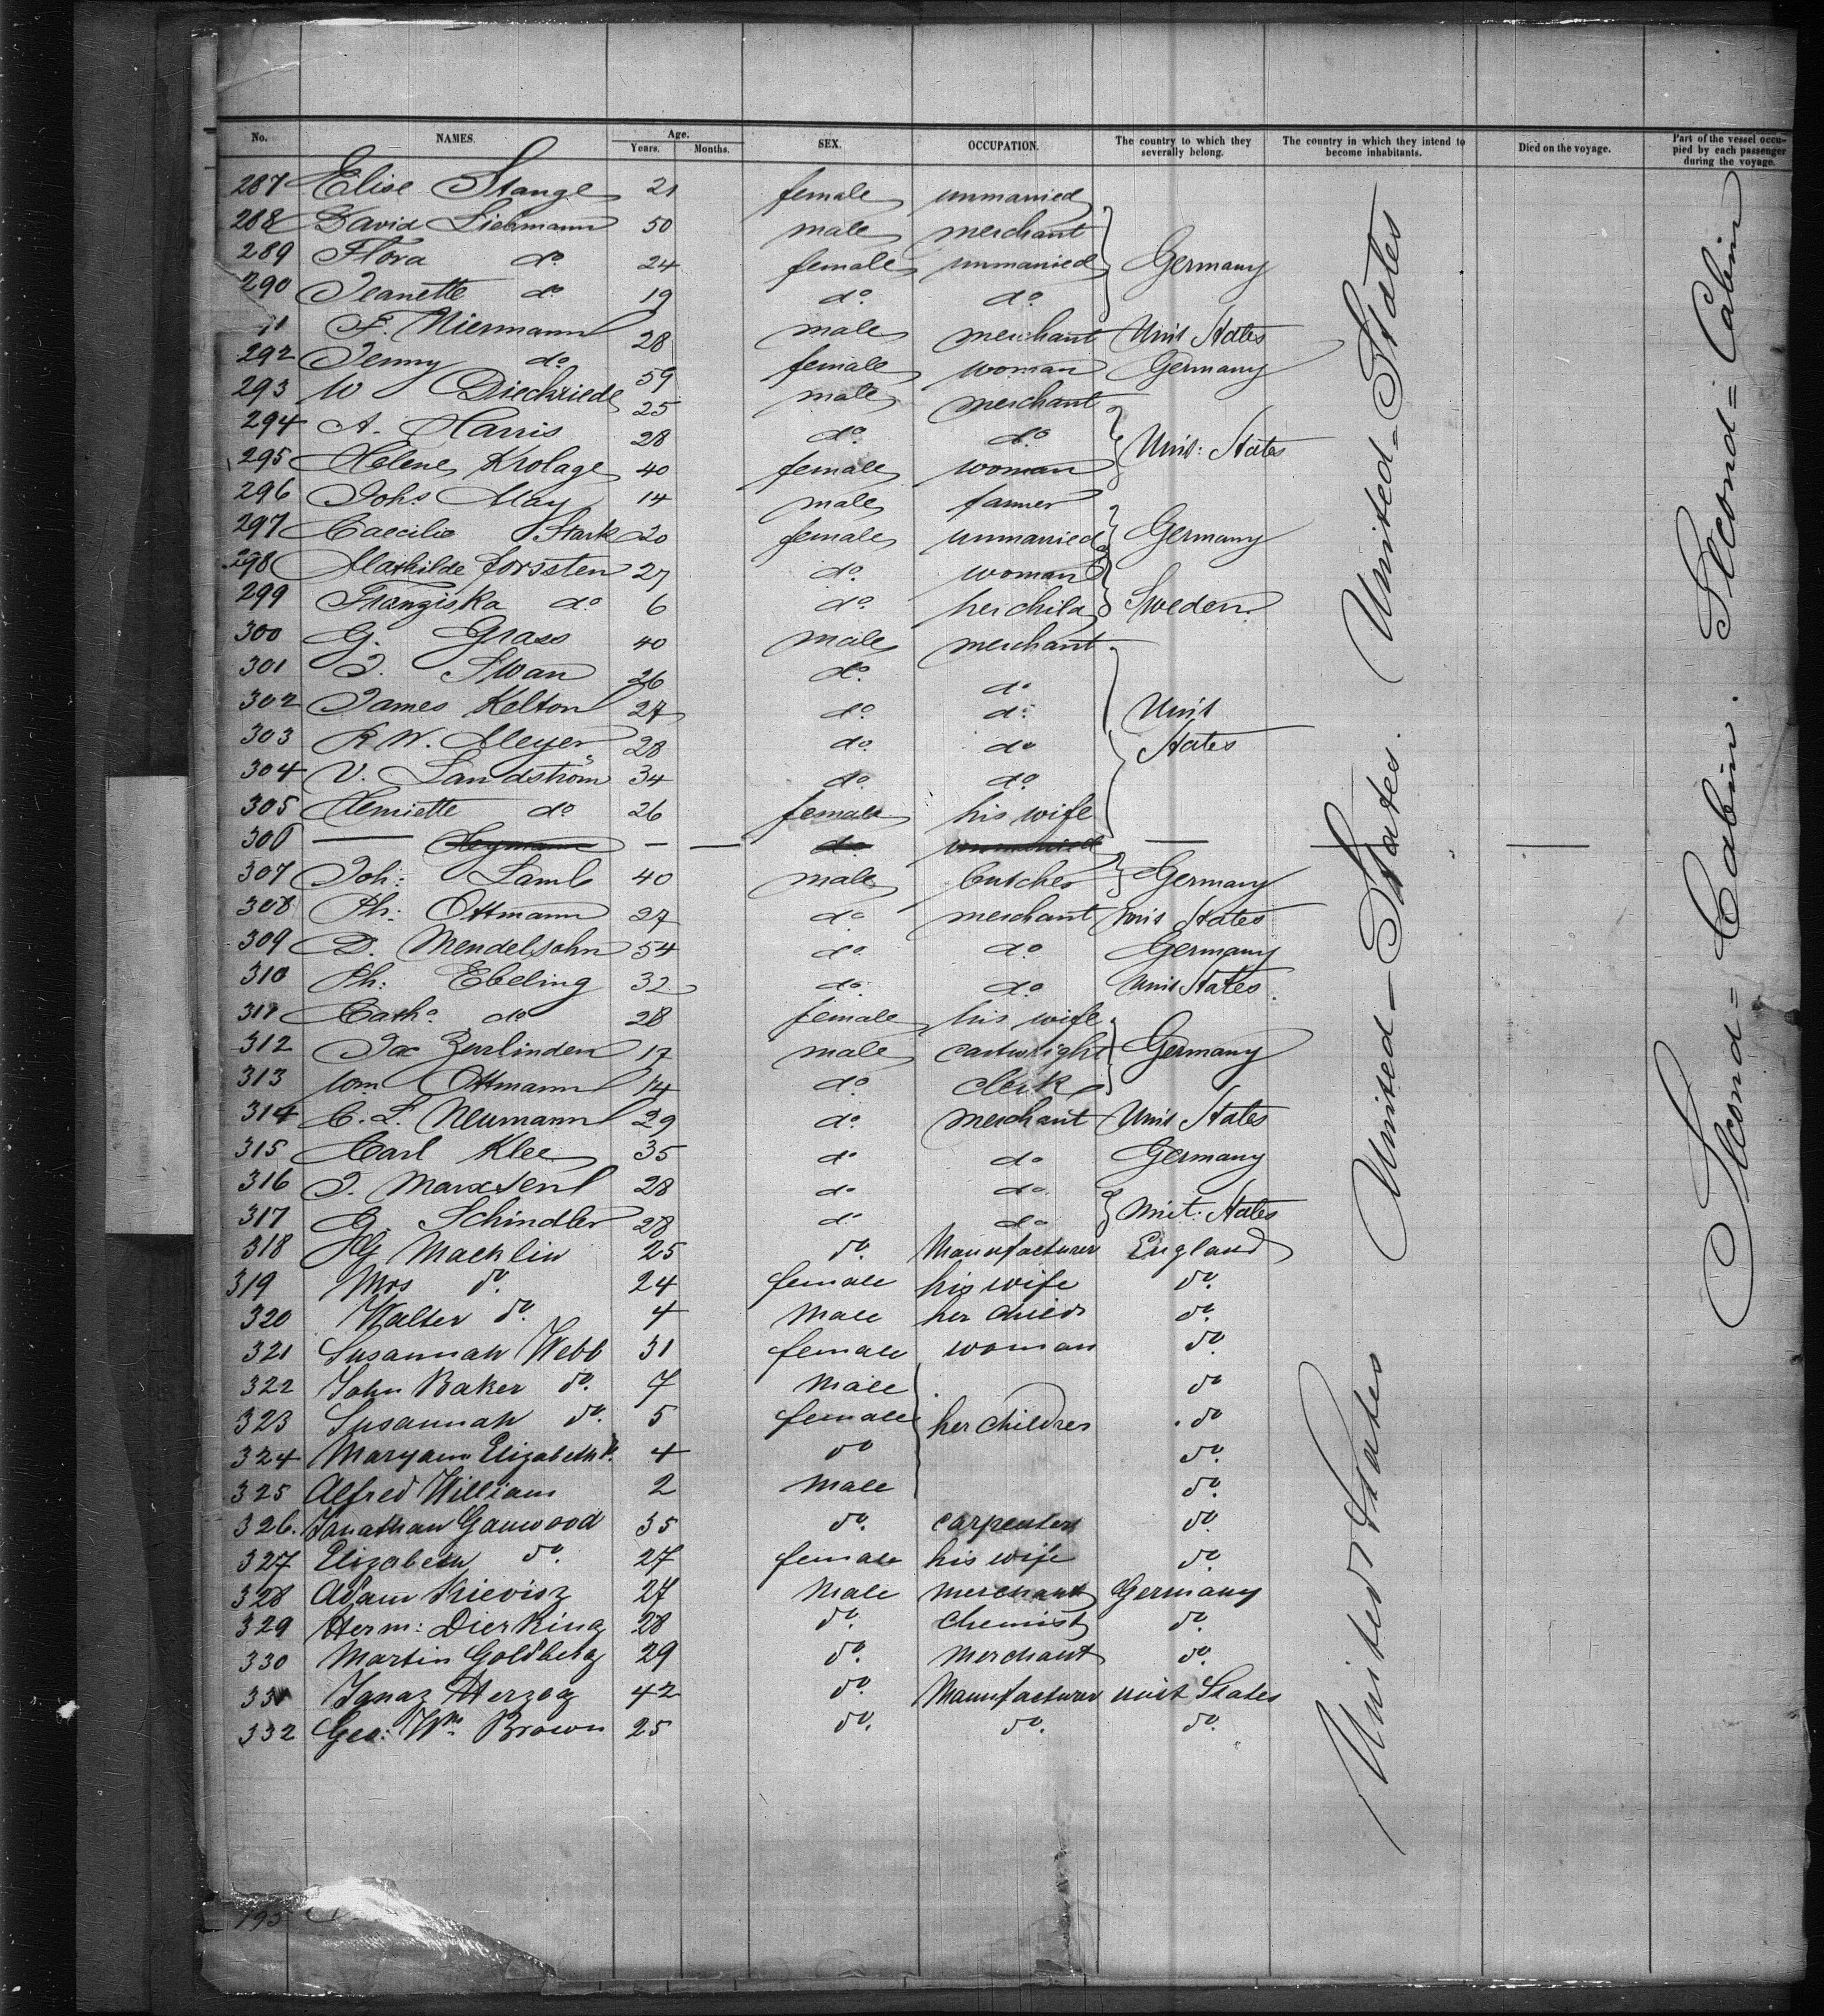 No. NAMES. Age. Years. Months. SEX. OCCUPATION. The country to which they severally belong. The country in which they intend to become inhabitants. Died on the voyage. Part of the vessel occupied by each passenger during the voyage.
287 Elise Stange 21 female unmarried
288 David Liebmann 50 male merchant
289 Flora do 24 female unmarried Germany
290 Jeanette do 19 do do
F. Niermann 28 male merchant Unit States
292 Jenny do 59 female woman Germany
293 W Diechriede 25 male merchant
294 A. Harris 28 do do Unit: States
295 Helene Krolage 40 female woman
296 Johs May 14 male farmer
297 Caecilie Stark 20 female unmarried Germany
298 Mathilde Forssten 27 do woman
299 Franziska do 6 do her child Sweden
300 G. Grass 40 male merchant
301 J. Swan 26 do do
302 James Kelton 27 do do Unit
303 R W. Meyer 28 do do States
304 V. Landström 34 do do
305 Henriette do 26 female his wife
306 — Heymann — — do unmarried — — —
307 Joh: Lamb 40 male butcher Germany
308 Ph: Ottmann 27 do merchant Unit States
309 D. Mendelsohn 54 do do Germany
310 Ph: Ebeling 32 do do Unit States
311 Catha do 28 female his wife
312 Jac Zerlinden 17 male cartwright Germany
313 Wm Ottmann 14 do clerk
314 C. L. Neumann 29 do merchant Unit States
315 Carl Klee 35 do do Germany
316 J. Marxsen 28 do do
317 G. Schindler 28 do do Unit. States
318 Macklin 25 do. Manufacturer England
319 Mrs do. 24 female his wife do.
320 Walter do. 4 Male her child do.
321 Susannah Webb 31 female woman do
322 John Baker do. 7 Male do
323 Susannah do. 5 female her children do
324 Maryann Elizabeth 4 do do.
325 Alfred William 2 Male do.
326. Jonathan Gauwood 35 do. carpenter do.
327 Elizabeth do. 27 female his wife do.
328 Adam Kievisz 27 Male merchant Germany
329 Herm: Dierking 28 do. Chemist do.
330 Martin Goldberg 29 do. Merchant do.
331 Ignaz Herzog 42 do. Manufacturer unit States
332 Geo: Wm Brown 25 do. do. do.
United States
United=States.
United=States
Second=Cabin.
Second=Cabin
193